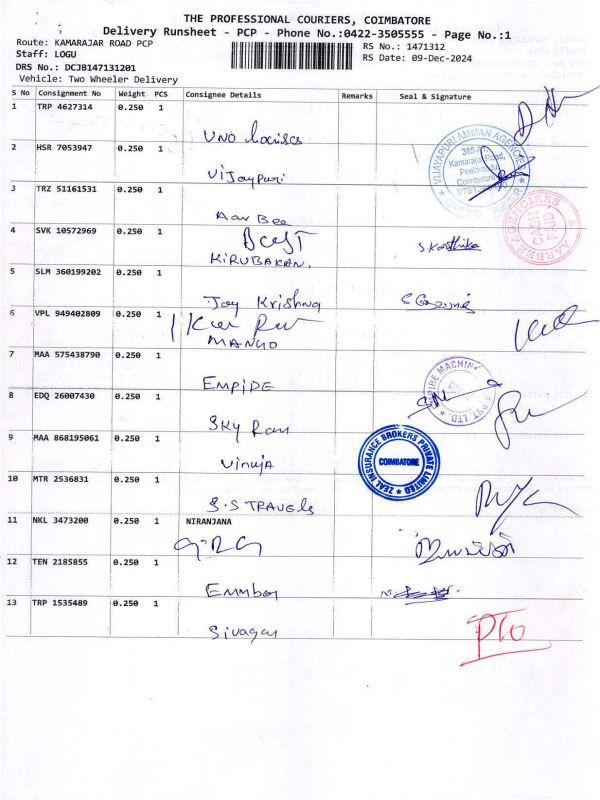 THE PROFESSIONAL COURIERS, COIMBATORE
Delivery Runsheet - PCP - Phone No.:0422-3505555 - Page No.:1
Route: KAMARAJAR ROAD PCP
RS No.: 1471312
Staff: LOGU
RS Date: 09-Dec-2024
DRS No.: DCJB147131201
Vehicle: Two Wheeler Delivery
S No Consignment No Weight PCS Consignee Details Remarks Seal & Signature
1 TRP 4627314 0.250 1
UNO
2 HSR 7053947 0.250 1
Vijaypuri
VIJAYAPURI AMMAN AGENCIES
Kamarajar Road,
Peelamedu
Coimbatore
3 TRZ 51161531 0.250 1
Aar Bee
4 SVK 10572969 0.250 1
KIRUBAKAN.
S. Karthika
5 SLM 360199202 0.250 1
Jay Krishna
6 VPL 949402809 0.250 1
MANGO
7 MAA 575438790 0.250 1
EMPIDE
8 EDQ 26007430 0.250 1
SKY Ram
9 MAA 868195061 0.250 1
Vinuja
ZEAL INSURANCE BROKERS PRIVATE LIMITED
COIMBATORE
10 MTR 2536831 0.250 1
S.S TRAVELS
11 NKL 3473200 0.250 1 NIRANJANA
GRG
12 TEN 2185855 0.250 1
Emmbey
13 TRP 1535489 0.250 1
Sivagar
PTO